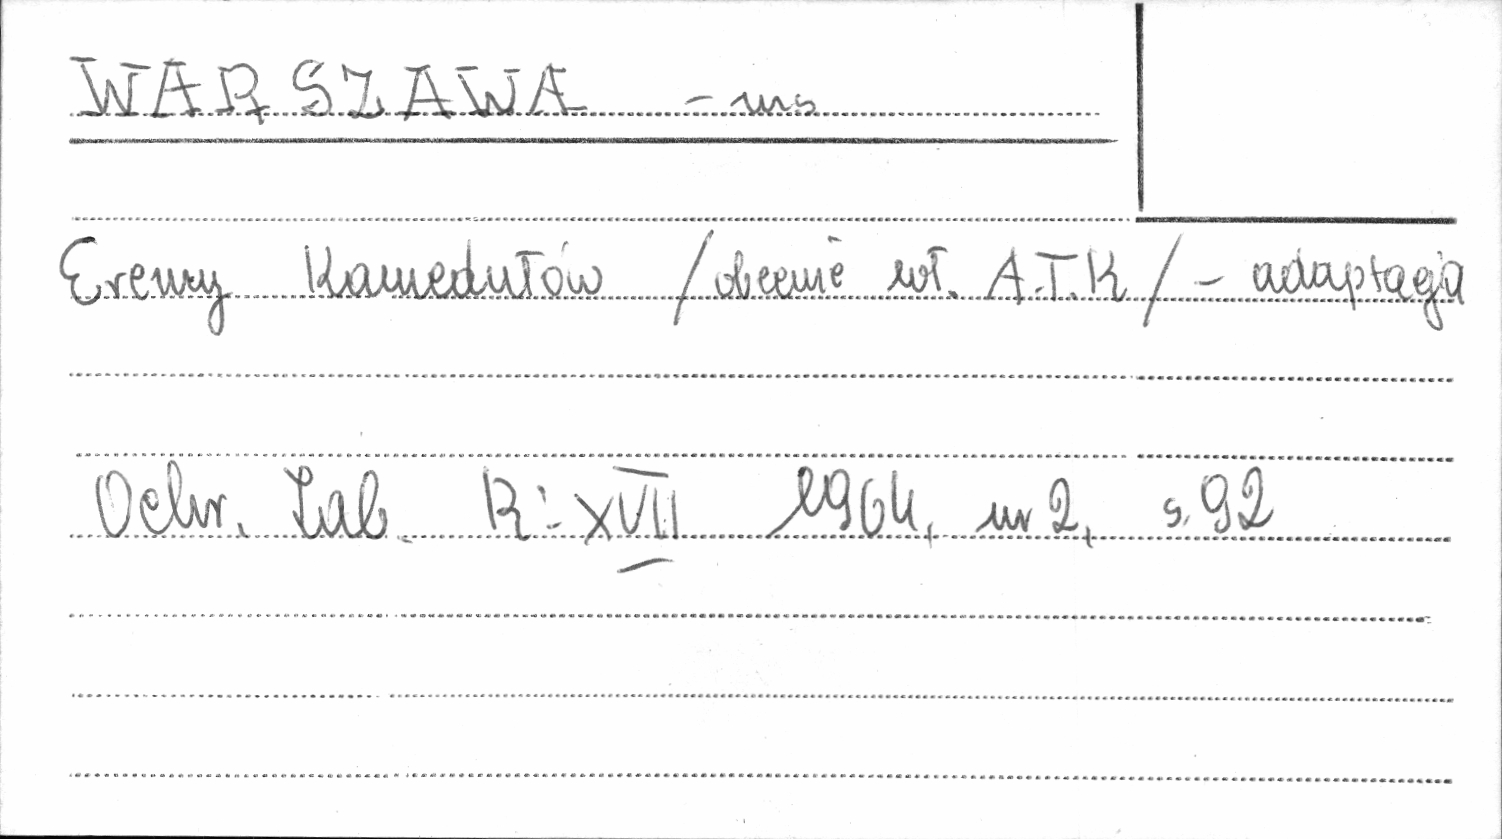 WARSZAWA - ms
Eremy Kamedułów /obecnie wł. A.T.K/ - adaptacja
Ochr. Zab. R: XVII 1964, nr 2, s. 92